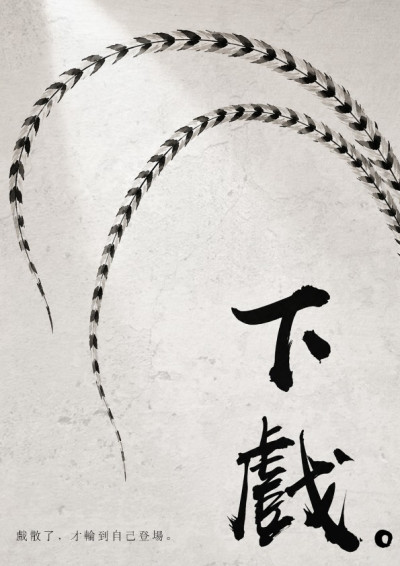 下戲。
戲散了，才輪到自己登場。